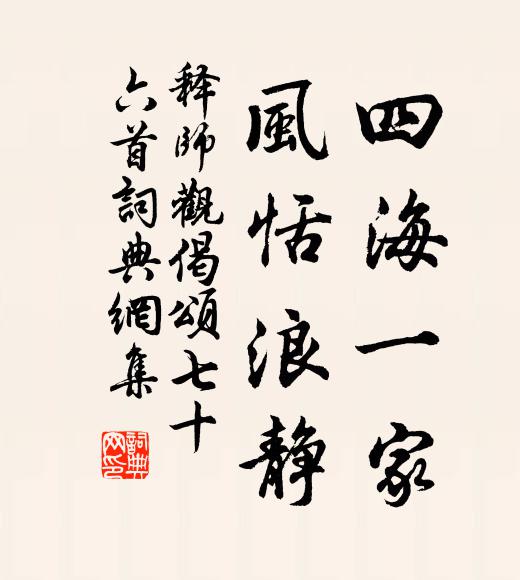 四海一家
風恬浪静
释師觀偈頌七十
六首詞典網集
詞典
网印